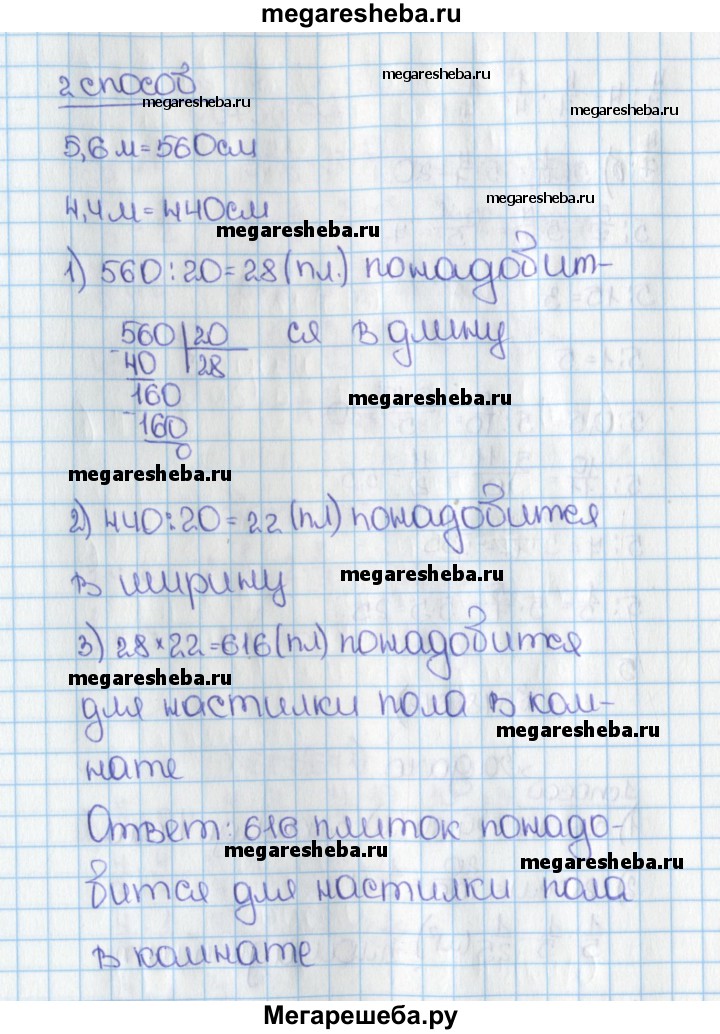 megaresheba.ru
2 способ
megaresheba.ru
megaresheba.ru
5,6 м = 560 см
megaresheba.ru
4,4 м = 440 см
megaresheba.ru
1) 560 : 20 = 28 (пл.) понадобит-
560 | 20 ся в длину
- 40 | 28
160
megaresheba.ru
- 160
0
megaresheba.ru
2) 440 : 20 = 22 (пл) понадобится
в ширину
megaresheba.ru
3) 28 × 22 = 616 (пл) понадобится
megaresheba.ru
для настилки пола в ком-
megaresheba.ru
нате
Ответ: 616 плиток понадо-
megaresheba.ru
megaresheba.ru
бится для настилки пола
в комнате
Мегарешеба.ру